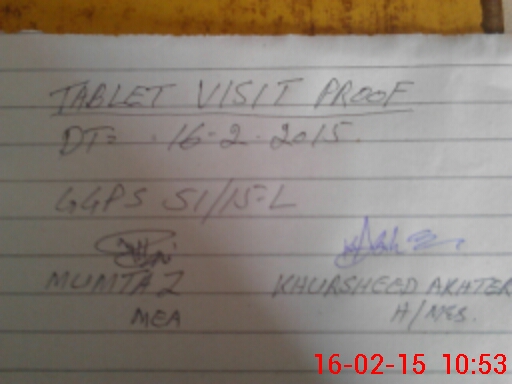 TABLET VISIT PROOF
DT= 16-2-2015.
GGPS 51/15-L
MUMTAZ KHURSHEED AKHTER
MEA H/MES.
16-02-15 10:53